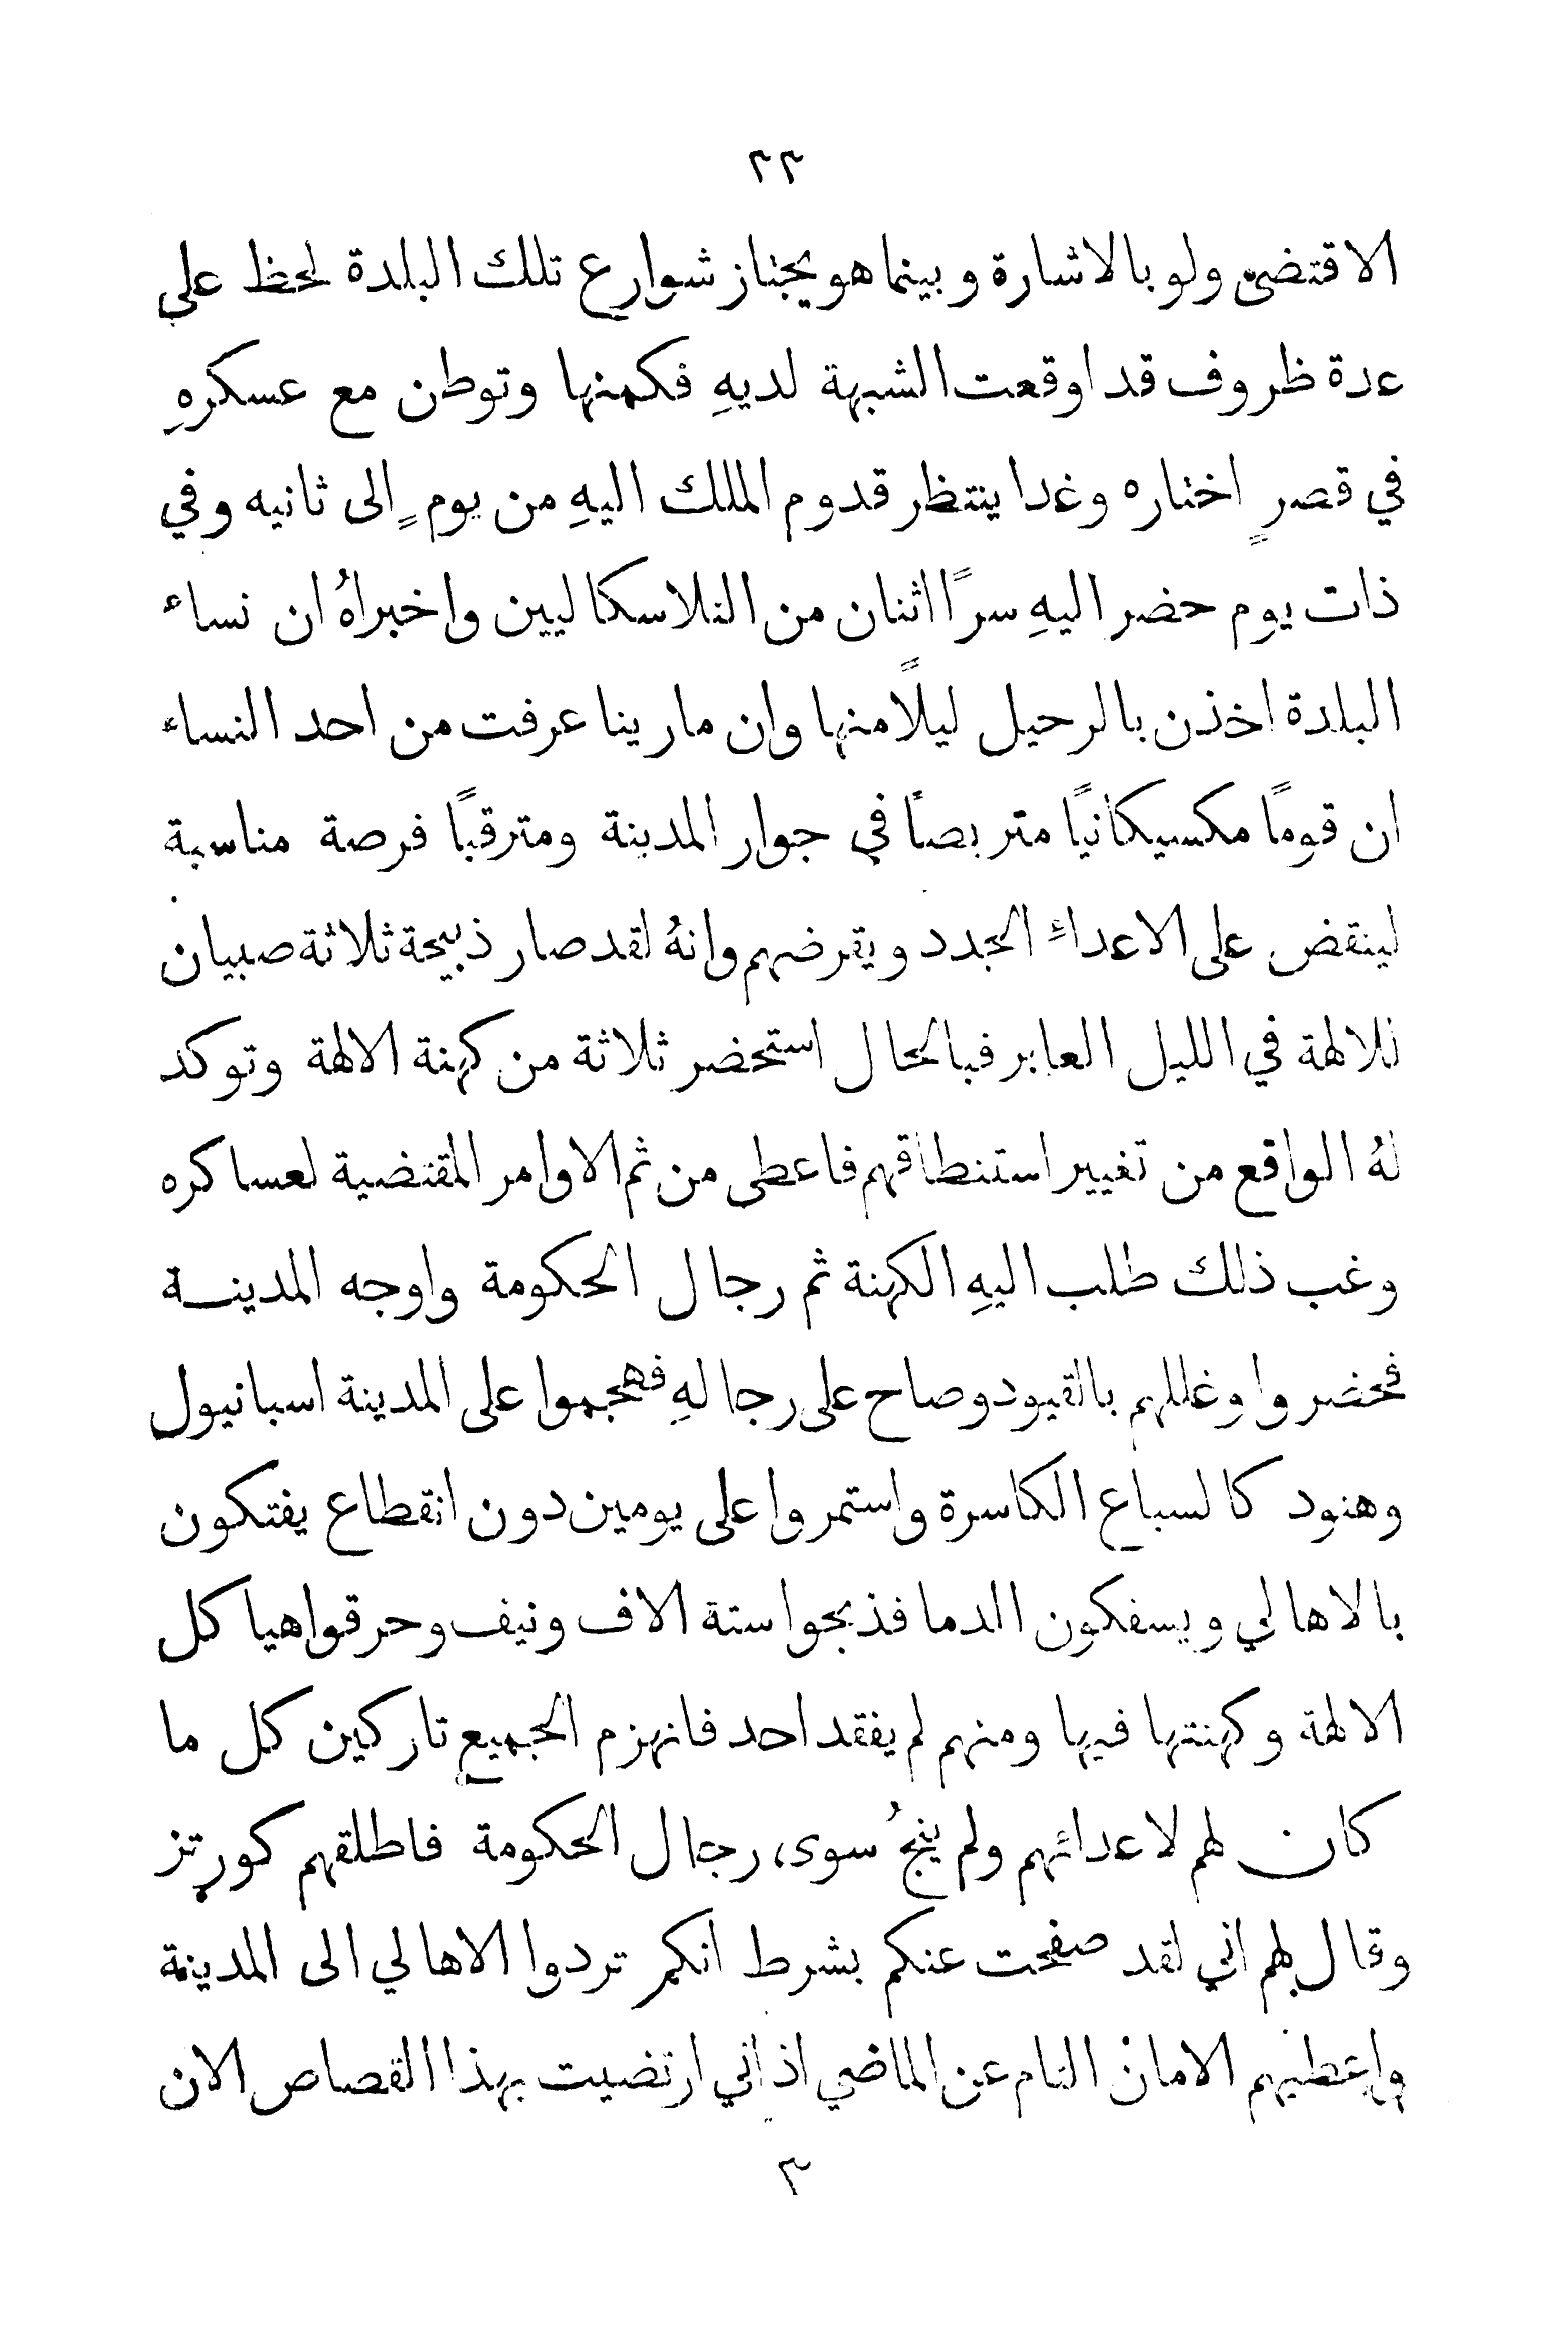 ٣٣
الاقتضى ولو بالاشارة وبينما هو يجتاز شوارع تلك البلدة لحظ على
عدة ظروف قد اوقعت الشبهة لديهِ فكمنها وتوطن مع عسكرهِ
في قصرٍ اختاره وغدا ينتظر قدوم الملك اليهِ من يومٍ الى ثانيه وفي
ذات يوم حضر اليهِ سرًّا اثنان من التلاسكاليين واخبراهُ ان نساء
البلدة اخذن بالرحيل ليلًا منها وان مارينا عرفت من احد النساء
ان قومًا مكسيكانيًا متربصًا في جوار المدينة ومترقبًا فرصة مناسبة
لينقض على الاعداءِ الجدد ويقرضهم وانهُ لقد صار ذبيحة ثلاثة صبيان
للالهة في الليل العابر فبالحال استحضر ثلاثة من كهنة الالهة وتوكد
لهُ الواقع من تغيير استنطاقهم فاعطى من ثم الاوامر المقتضية لعساكره
وغب ذلك طلب اليهِ الكهنة ثم رجال الحكومة واوجه المدينة
فحضروا وغللهم بالقيود وصاح على رجالهِ فهجموا على المدينة اسبانيول
وهنود كالسباع الكاسرة واستمروا على يومين دون انقطاع يفتكون
بالاهالي ويسفكون الدما فذبحوا ستة الاف ونيف وحرقوا هياكل
الالهة وكهنتها فيها ومنهم لم يفقد احد فانهزم الجميع تاركين كل ما
كان لهم لاعدائهم ولم ينجُ سوى رجال الحكومة فاطلقهم كورتز
وقال لهم اني لقد صفحت عنكم بشرط انكم تردوا الاهالي الى المدينة
واعطيهم الامان التام عن الماضي اذ اني ارتضيت بهذا القصاص الان
٣